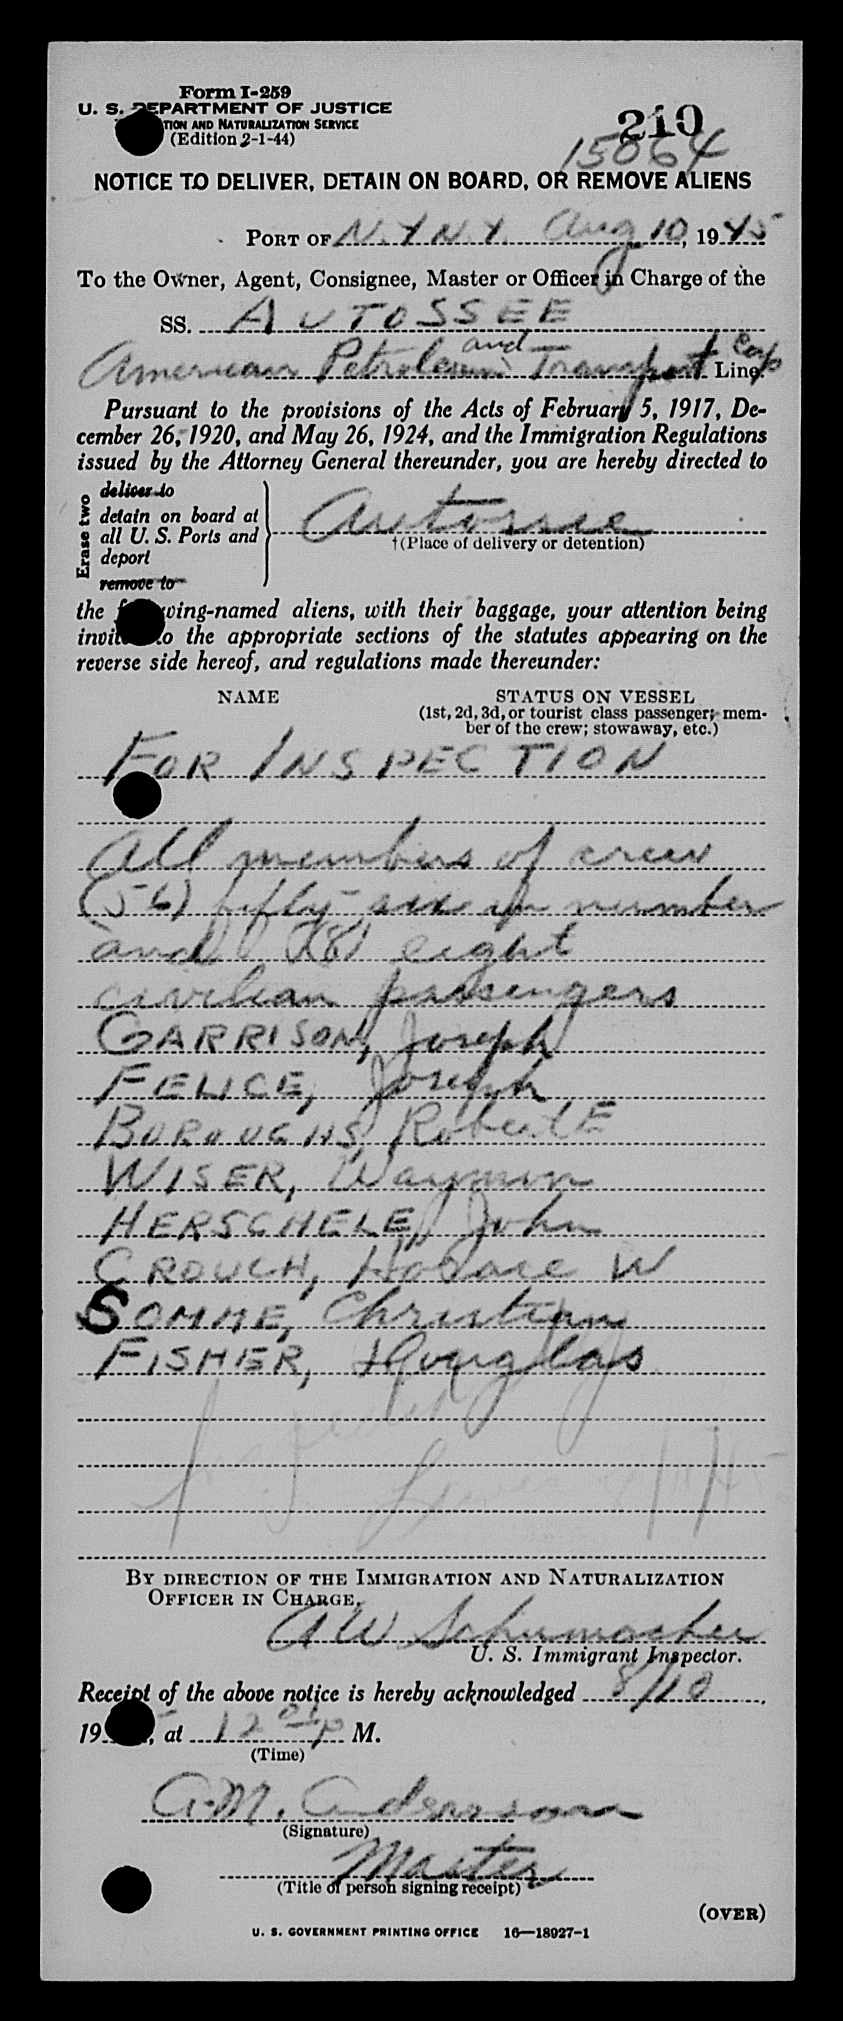 Form I-259
U. S. DEPARTMENT OF JUSTICE
TION AND NATURALIZATION SERVICE
(Edition 2-1-44)
210
15064
NOTICE TO DELIVER, DETAIN ON BOARD, OR REMOVE ALIENS
PORT OF N.Y N.Y. Aug 10, 1945
To the Owner, Agent, Consignee, Master or Officer in Charge of the
SS. AUTOSSEE
American Petroleum and Transport Corp Line.
Pursuant to the provisions of the Acts of February 5, 1917, De-
cember 26, 1920, and May 26, 1924, and the Immigration Regulations
issued by the Attorney General thereunder, you are hereby directed to
Erase two
deliver to
detain on board at
all U. S. Ports and
deport
remove to
Autossee
†(Place of delivery or detention)
the wing-named aliens, with their baggage, your attention being
invit to the appropriate sections of the statutes appearing on the
reverse side hereof, and regulations made thereunder:
NAME STATUS ON VESSEL
(1st, 2d, 3d, or tourist class passenger; mem-
ber of the crew; stowaway, etc.)
FOR INSPECTION
All members of crew
(56) fifty-six in number
and (8) eight
civilian passengers
GARRISON, Joseph
FELICE, Joseph
BOROUGHS, Robert E
WISER, Waymon
HERSCHELE, John
CROUCH, Horace W
SOMME, Christian
FISHER, Douglas
BY DIRECTION OF THE IMMIGRATION AND NATURALIZATION
OFFICER IN CHARGE,
AW Schumacher
U. S. Immigrant Inspector.
Receipt of the above notice is hereby acknowledged 8/10
19 , at 12 P M.
(Time)
A.M. Anderson
(Signature)
Master
(Title of person signing receipt)
(OVER)
U. S. GOVERNMENT PRINTING OFFICE 16—18927-1